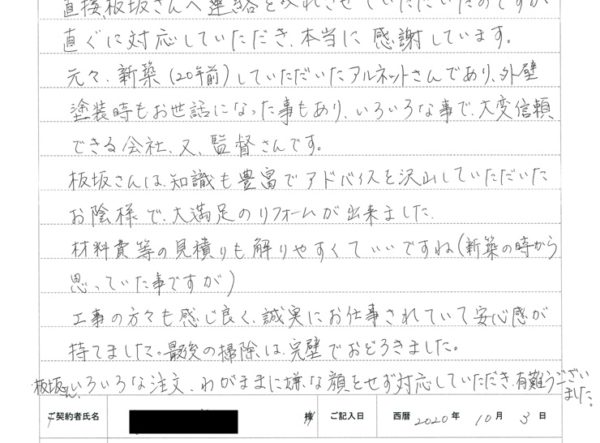 直接、板坂さんへ連絡を入れさせていただいたのですが
直ぐに対応していただき、本当に感謝しています。
元々、新築(20年前)していただいたアルネットさんであり、外壁
塗装時もお世話になった事もあり、いろいろな事で、大変信頼
できる会社、又、監督さんです。
板坂さんは、知識も豊富でアドバイスを沢山していただいた
お陰様で、大満足のリフォームが出来ました。
材料費等の見積りも解りやすくていいですね(新築の時から
思っていた事ですが)
工事の方々も感じ良く、誠実にお仕事されていて安心感が
持てました。最後の掃除は、完璧でおどろきました。
板坂さん、いろいろな注文、わがままに嫌な顔をせず対応していただき、有難うござい
ました。
ご契約者氏名 様 ご記入日 西暦 2020年 10月 3日